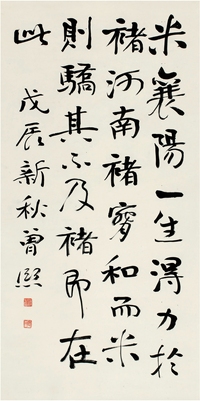 米襄陽一生得力於
褚河南褚穸和而米
則驕其不及褚即在
此
戊辰新秋曾熙